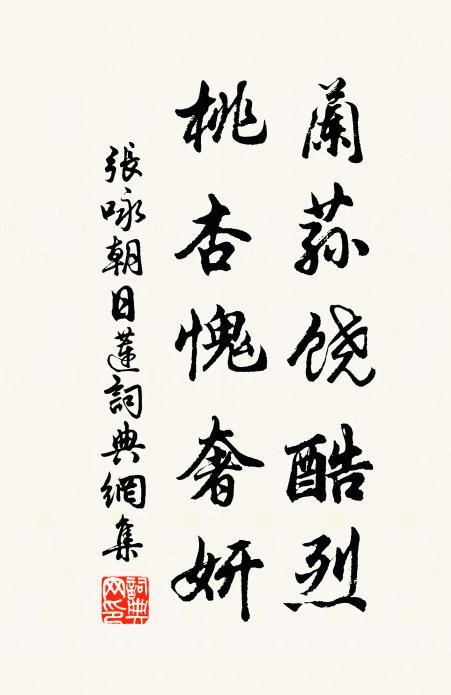 蘭蓀饶酷烈
桃杏愧奢妍
張咏朝日蓮詞典網集
詞典网印